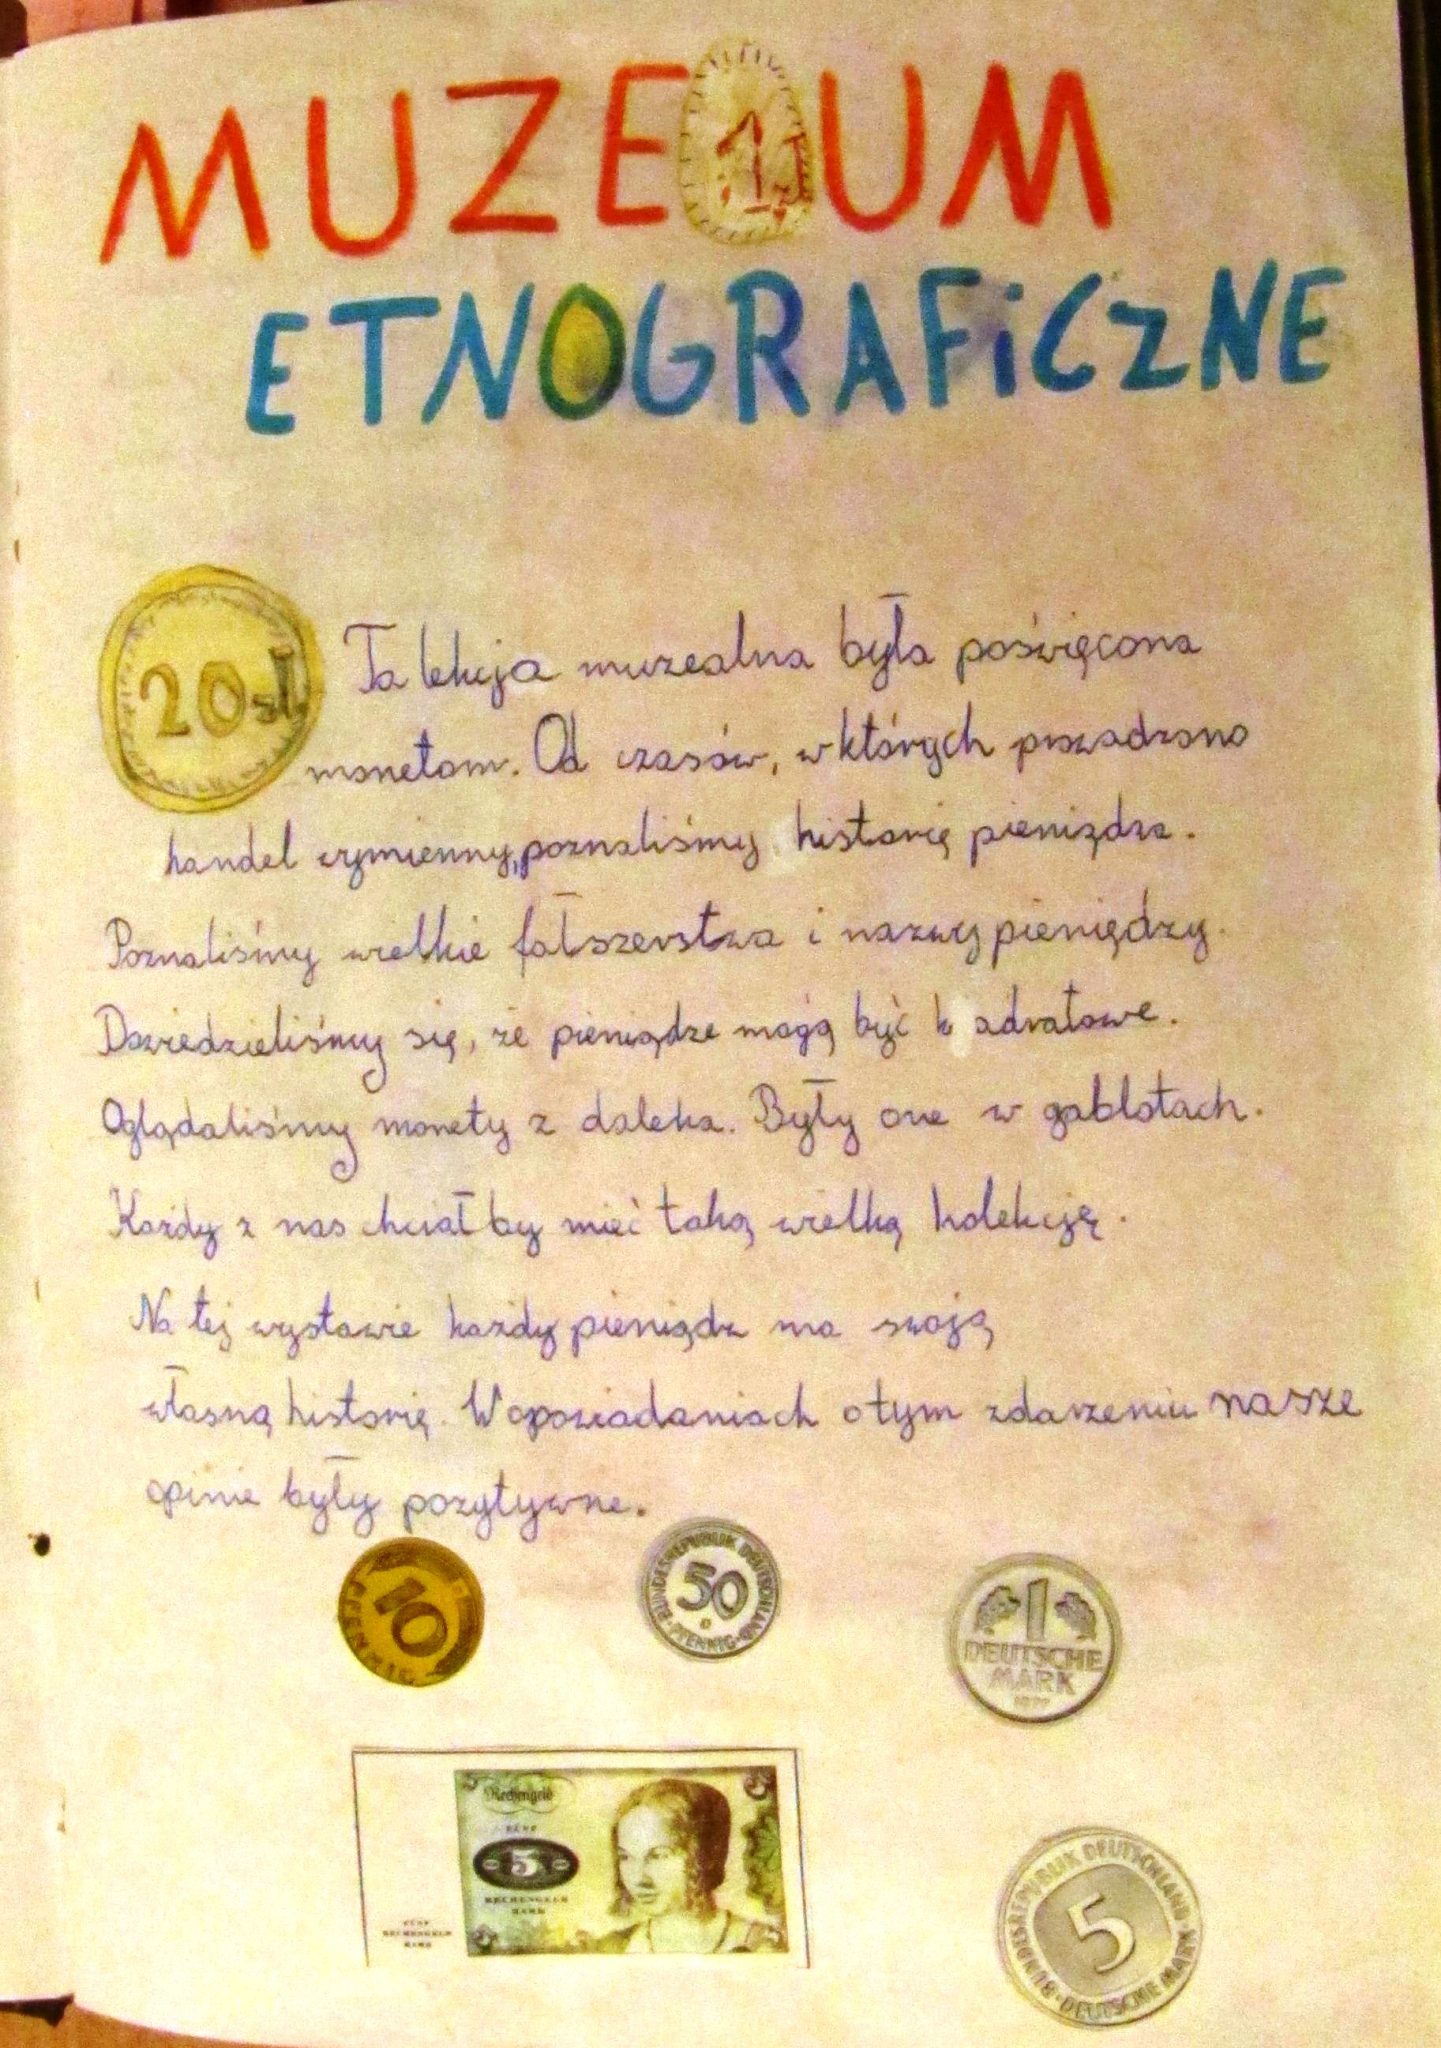 MUZEUM
ETNOGRAFiCZNE
20zł
Ta lekcja muzealna była poświęcona
monetom. Od czasów, w których prowadzono
handel wymienny, poznaliśmy historię pieniądza.
Poznaliśmy wielkie fałszerstwa i nazwy pieniędzy.
Dowiedzieliśmy się, że pieniądze mogą być kwadratowe.
Oglądaliśmy monety z daleka. Były one w gablotach.
Każdy z nas chciałby mieć taką wielką kolekcję.
Na tej wystawie każdy pieniądz ma swoją
własną historię. W opowiadaniach o tym zdarzeniu nasze
opinie były pozytywne.
10
PFENNIG
BUNDESREPUBLIK DEUTSCHLAND
50
PFENNIG
1
DEUTSCHE
MARK
Rechengeld
5
FÜNF
5
RECHENGELD
MARK
5
FÜNF
RECHENGELD
MARK
BUNDESREPUBLIK DEUTSCHLAND
5
DEUTSCHE MARK